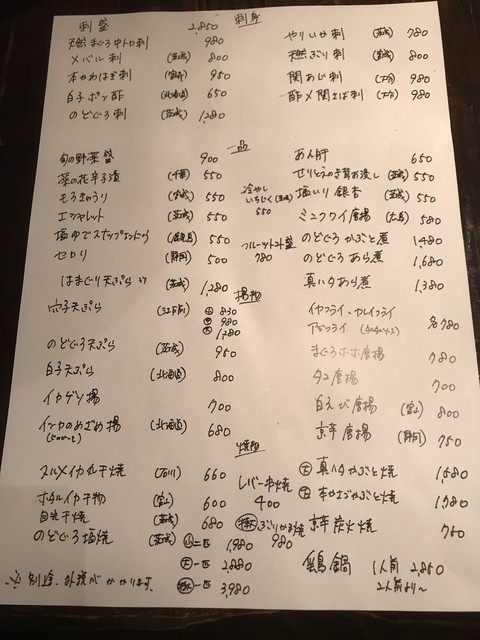 刺身
刺盛 2,850
天然まぐろ中トロ刺 980
メバル刺 (茨城) 800
本かわはぎ刺 950
白子ポン酢 (北海道) 650
のどぐろ刺 (茨城) 1,280
やりいか刺 (茨城) 780
天然ぶり刺 (茨城) 800
関あじ刺 (大分) 980
酢〆関さば刺 (大分) 980
一品
旬の野菜盛 900
菜の花辛子漬 (千葉) 550
もろきゅうり 550
エシャレット (茨城) 550
塩ゆでスナップえんどう (鹿児島) 550
セロリ (静岡) 500
はまぐり天ぷら (茨城) 1,280
冷やし
いちじく (茨城)
550
フルーツトマト盛
780
あん肝 650
せりとえのき茸お浸し (茨城) 550
塩いり銀杏 (茨城) 550
ミニクワイ唐揚 (広島) 580
のどぐろかぶと煮 1,480
のどぐろあら煮 1,680
真ハタあら煮 1,380
揚物
穴子天ぷら (江戸前) 小 830
中 980
大 1,280
のどぐろ天ぷら (茨城) 950
白子天ぷら (北海道) 800
イカゲソ揚 700
インカのめざめ揚 (北海道) 680
イカフライ・カレイフライ
アジフライ 各780
まぐろホホ唐揚 780
タコ唐揚 700
白えび唐揚 (富山) 800
京芋唐揚 (静岡) 750
焼物
スルメイカ丸干焼 (石川) 660
ホタルイカ干物 (富山) 600
目光干焼 (茨城) 680
のどぐろ塩焼 (茨城) 小 二匹 1,980
大 一匹 2,880
一匹 3,980
レバー串焼
400
ぶりかま焼
980
真ハタかぶと焼 1,580
京芋炭火焼 750
鶏鍋 1人前 2,850
2人前より〜
※別途、外税がかかります。